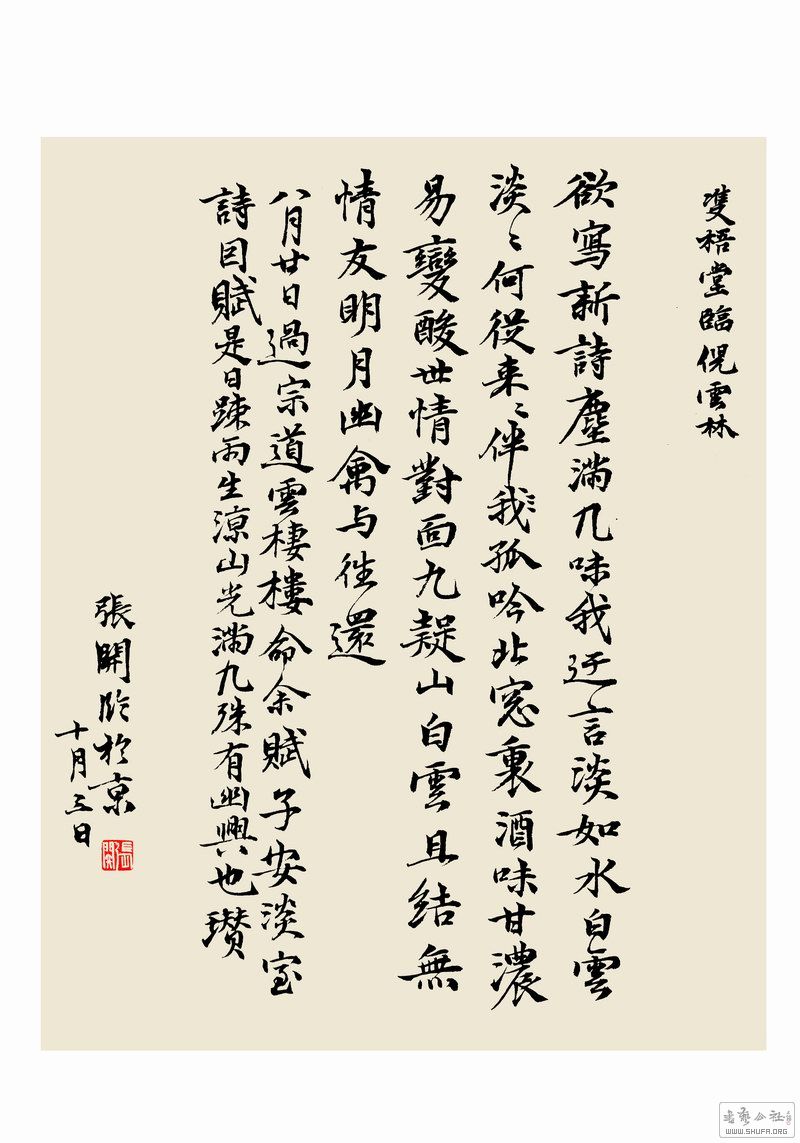 雙梧堂臨倪雲林
欲寫新詩塵滿几味我迂言淡如水白雲
淡〻何從来〻伴我孤吟北窓裏酒味甘濃
易變酸世情對面九疑山白雲且結無
情友明月幽禽与往還
八月廿日過宗道雲棲樓命余賦子安淡室
詩因賦是日踈雨生涼山光滿几殊有幽興也瓚
張開
於京
十月三日
書藝公社
WWW.SHUFA.ORG